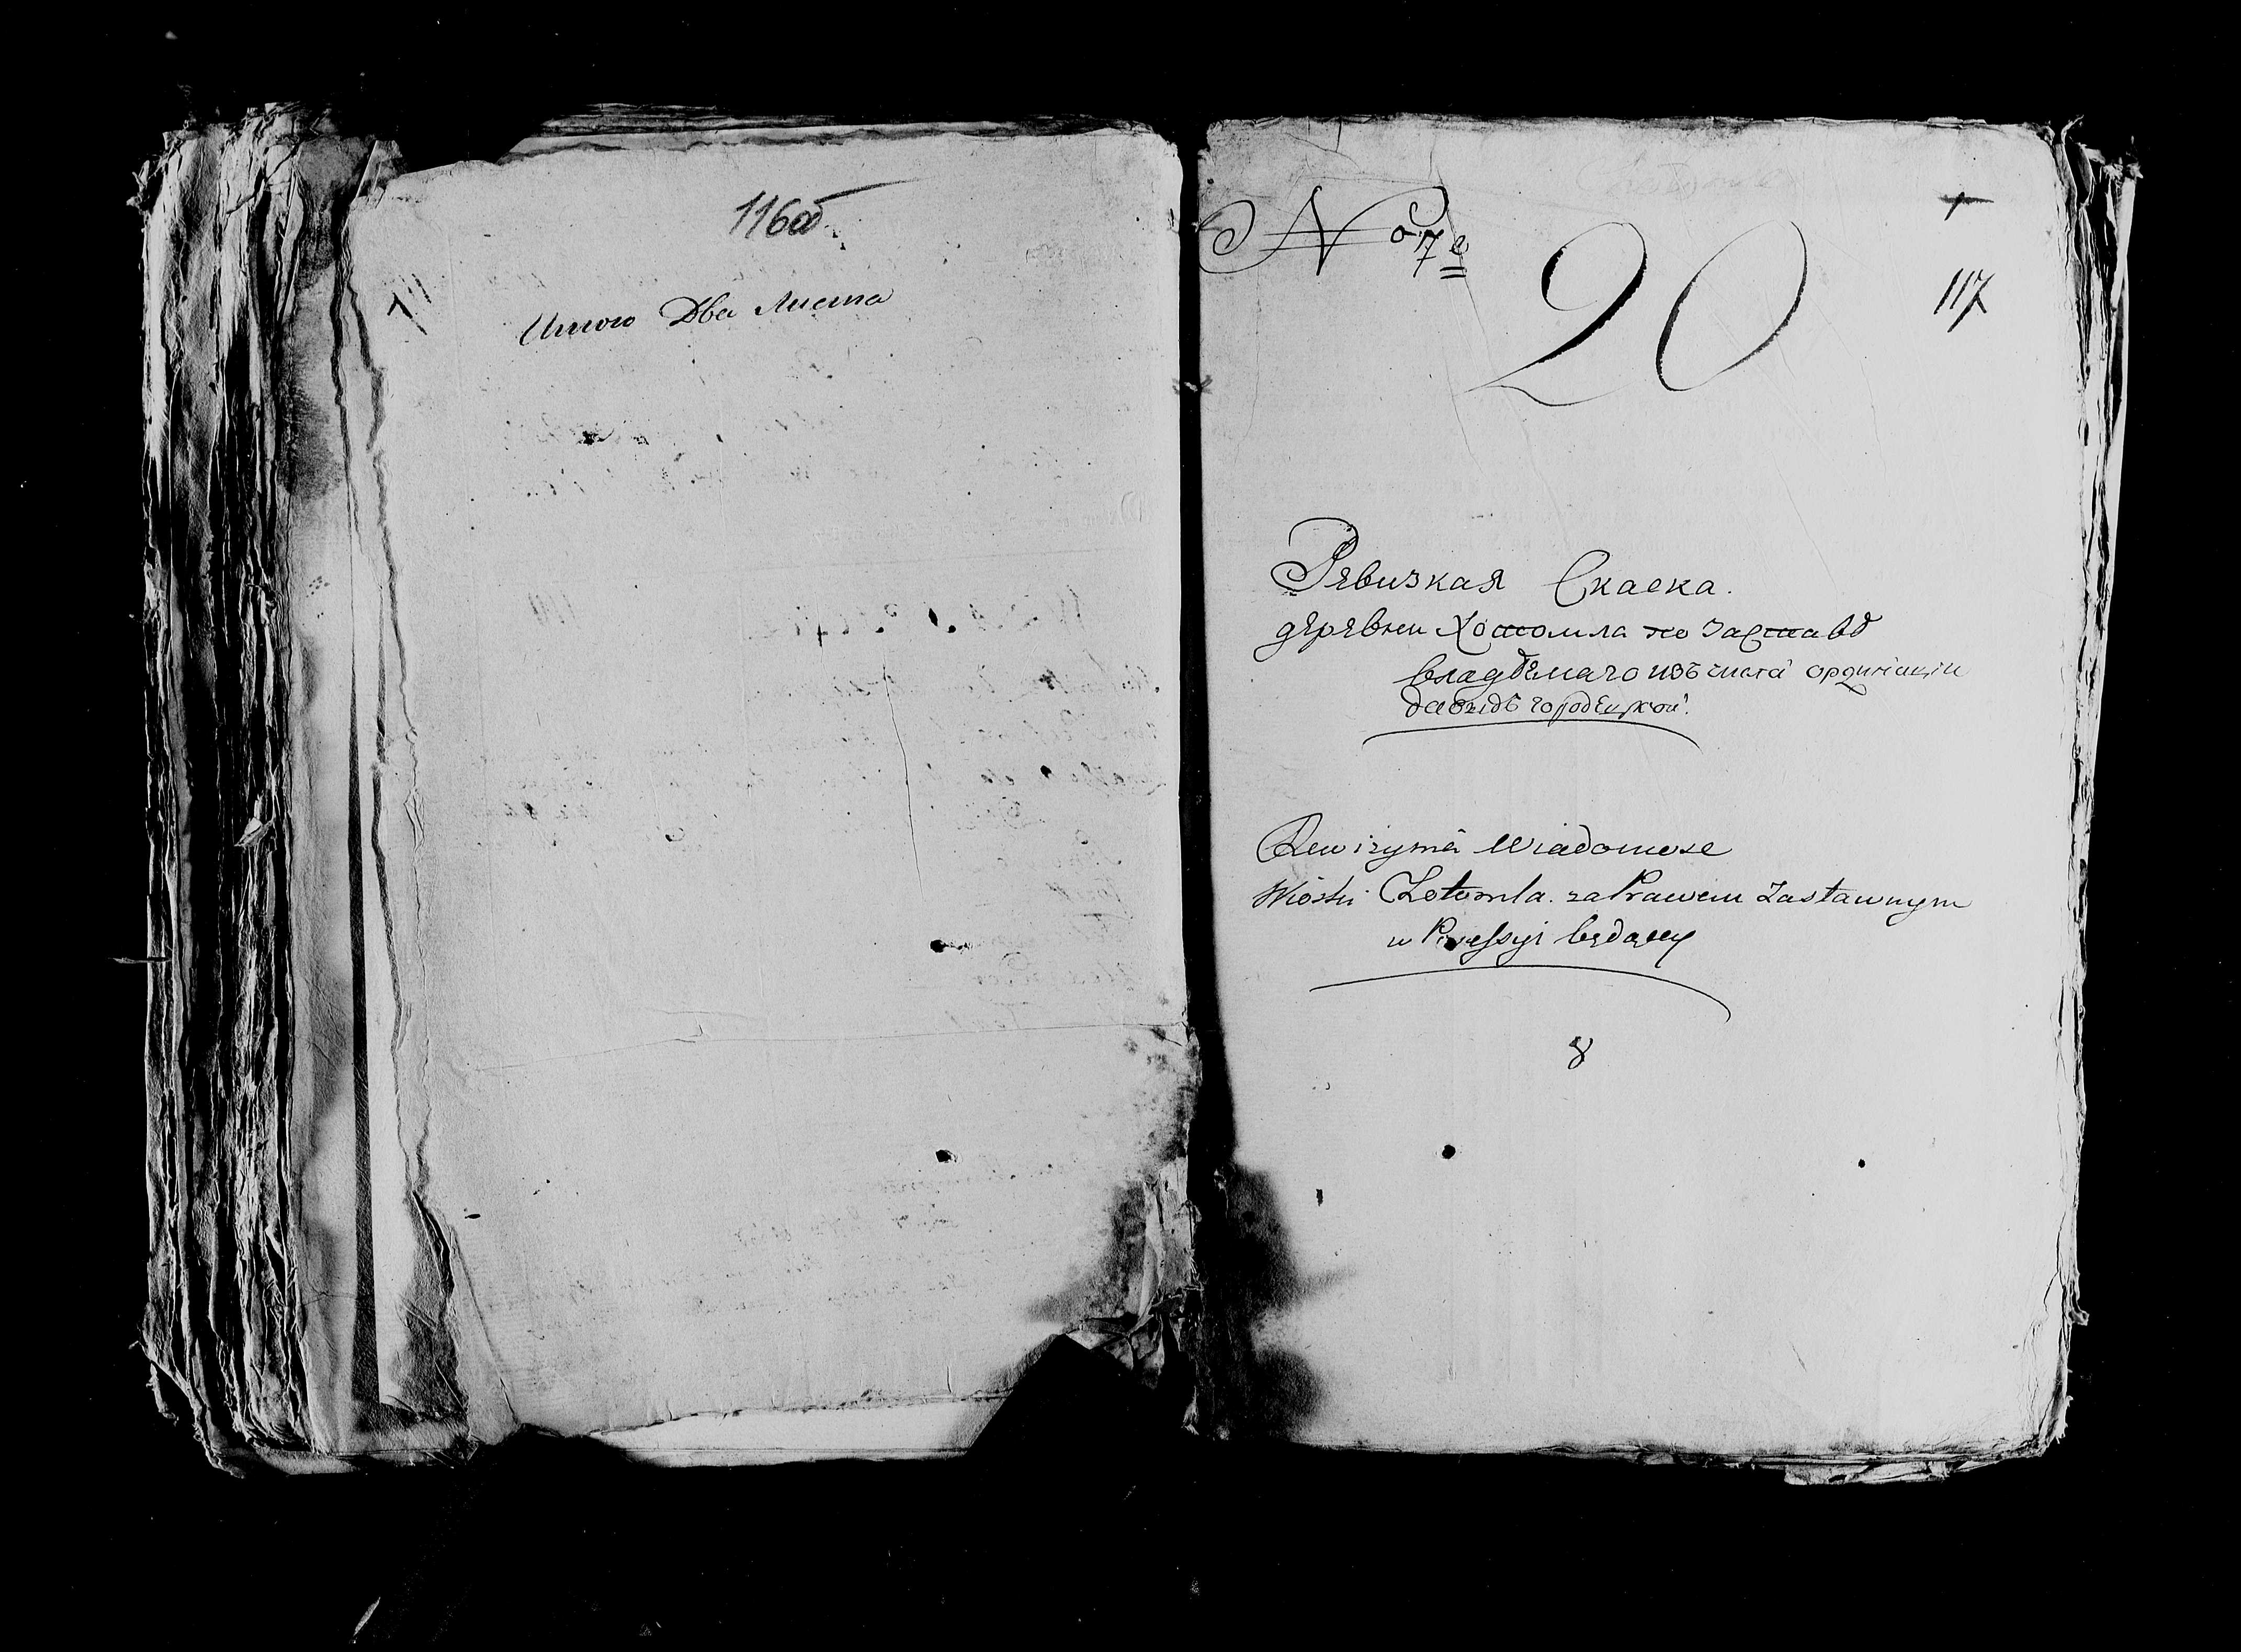 116об
Итого Два Листа
No 7e
20
117
Ревизкая Скаска.
деревни Хотомла по заставѣ
владѣемаго изъ числа ординацiи
давидъ городецкой.
Rewizyina Wiadomosc
Wioski Hotomla. za Prawem Zastawnym
w Possessyi będącey
8